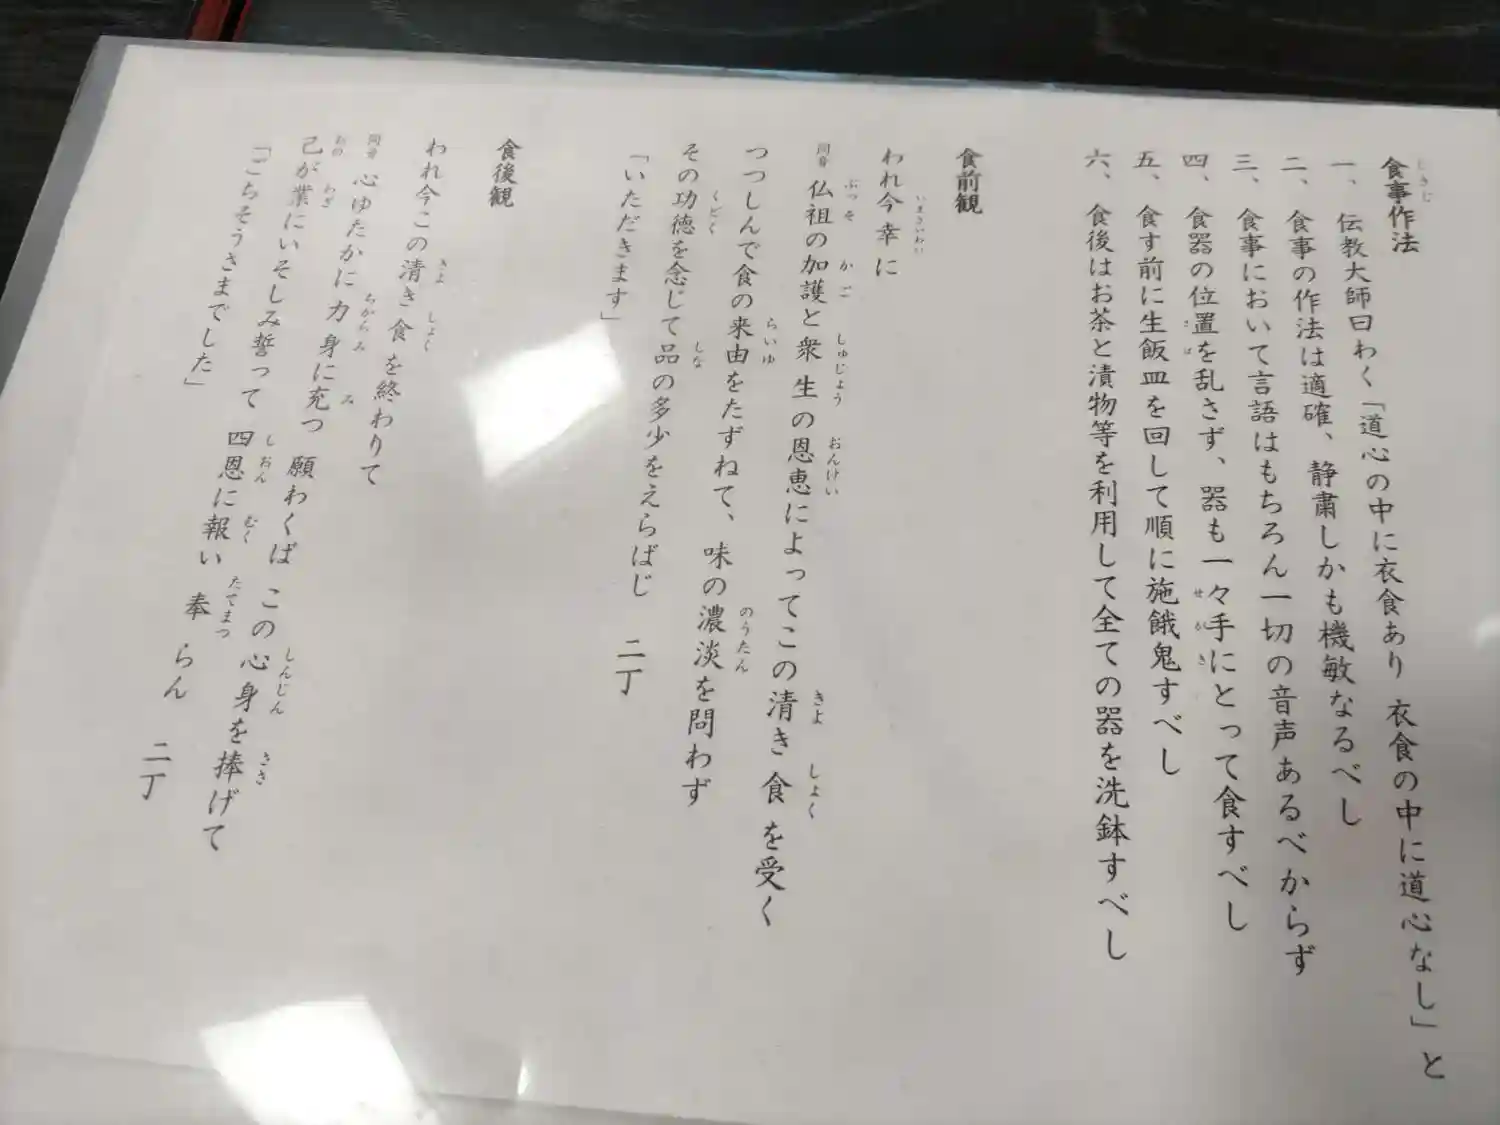 食事作法
一、伝教大師曰わく「道心の中に衣食あり 衣食の中に道心なし」と
二、食事の作法は適確、静粛しかも機敏なるべし
三、食事において言語はもちろん一切の音声あるべからず
四、食器の位置を乱さず、器も一々手にとって食すべし
五、食す前に生飯皿を回して順に施餓鬼すべし
六、食後はお茶と漬物等を利用して全ての器を洗鉢すべし
食前観
われ今幸に
同音 仏祖の加護と衆生の恩恵によってこの清き食を受く
つつしんで食の来由をたずねて、味の濃淡を問わず
その功徳を念じて品の多少をえらばじ 二丁
「いただきます」
食後観
われ今この清き食を終わりて
同音 心ゆたかに力身に充つ 願わくば この心身を捧げて
己が業にいそしみ誓って 四恩に報い奉らん 二丁
「ごちそうさまでした」